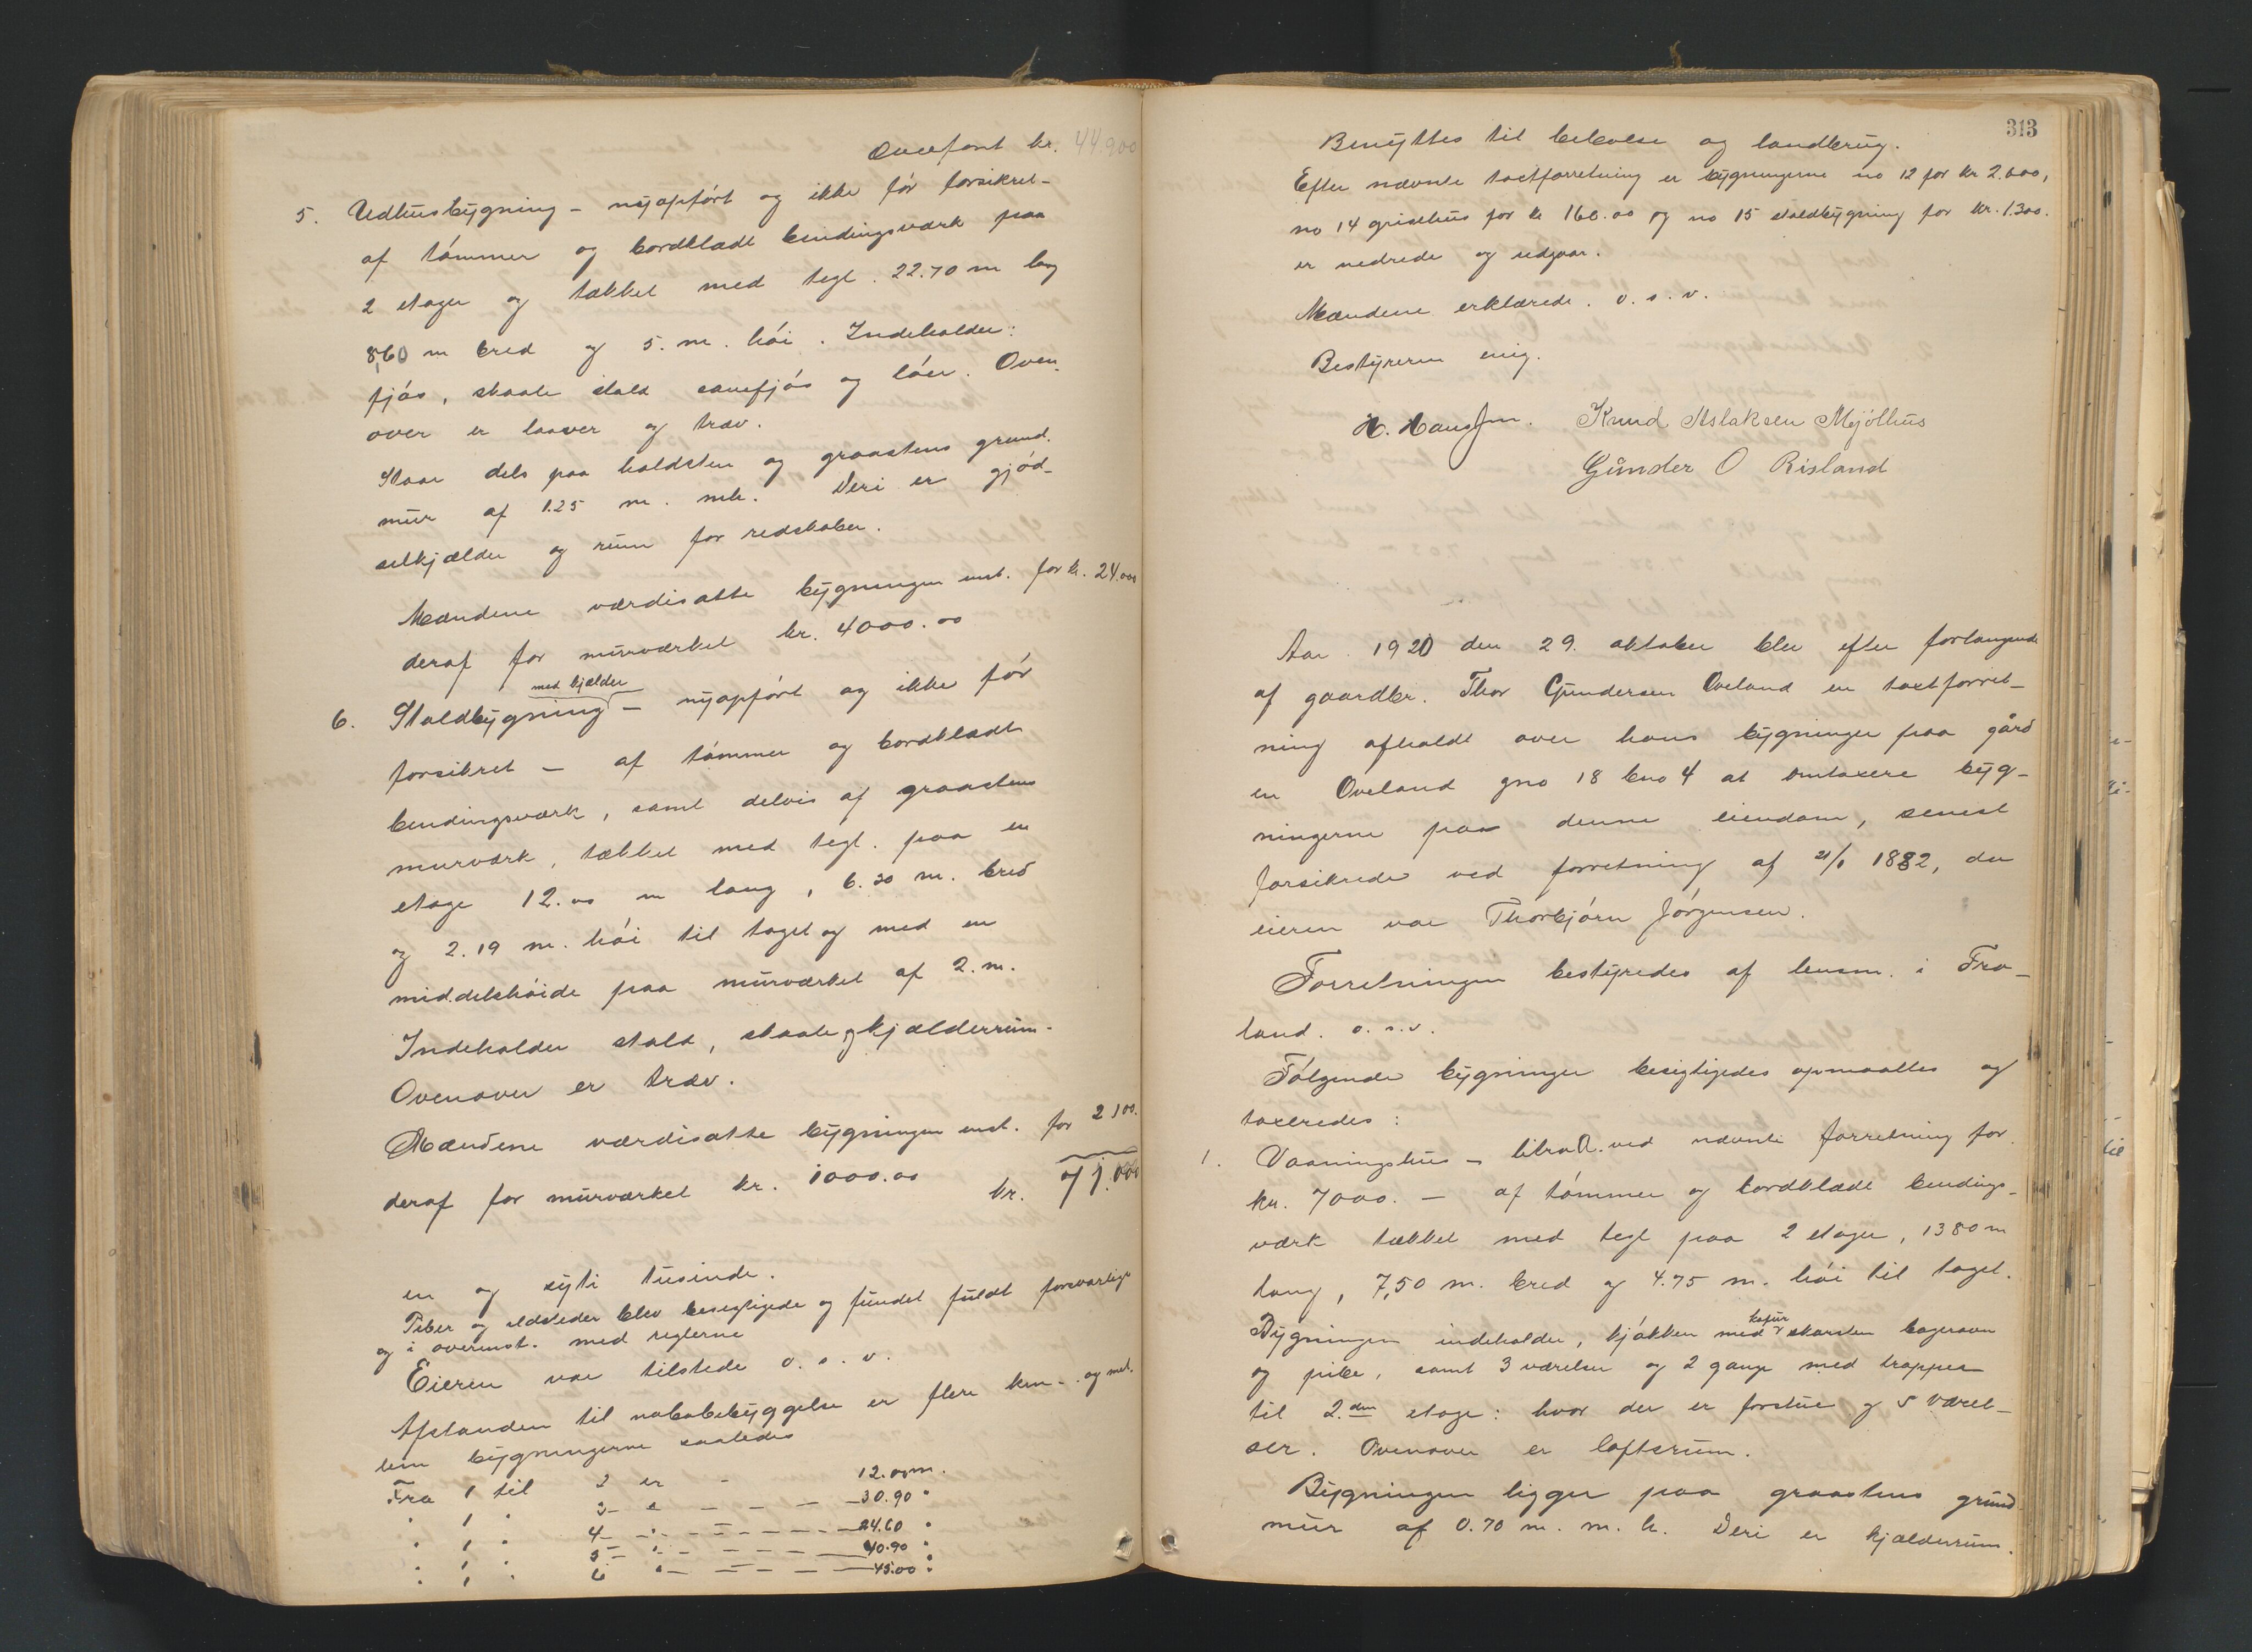 Overført kr. 44.900
5. Udhusbygning – nyopført og ikke før forsikret –
af tømmer og bordklædt bindingsværk paa
2 etager og tækket med tegl. 22.70 m lang
8,60 m bred og 5. m. høi. Indeholder:
fjøs, skaale stald sauefjøs og løer. Oven-
over er laaver og træv.
Staar dels paa holdsten og graastens grund-
mur af 1.25 m. mh. Deri er gjød-
selkjælder og rum for redskaber.
Mændene værdisatte bygningen enst. for kr. 24.000
deraf for murværket kr. 4000.00
med kjælder
6. Staldbygning – nyopført og ikke før
forsikret – af tømmer og bordklædt
bindingsværk, samt delvis af graastens
murværk, tækket med tegl. paa en
etage 12.00 m lang, 6.20 m. bred
og 2.19 m. høi til taget og med en
middelshøide paa murværket af 2. m.
Indeholder stald, skaale og kjælderrum.
Ovenover er træv.
Mændene værdisatte bygningen enst. for 2100.
deraf for murværket kr. 1000.00 kr. 71.000
en og sytti tusinde.
Piber og ildsteder blev besigtigede og fundet fuldt forsvarlige
og i overenst. med reglerne
Eieren var tilstede o. s. v.
Afstanden til nabobebyggelse er flere km – og mel-
lem bygningerne saaledes
Fra 1 til 2 er - 12.00 m.
" 1 " 3 – " – – – – 30.90 "
" 1 " 4 – " – – – – 24.60 "
" 1 " 5 – " – – – – 40.90 "
" 1 " 6 " – – – – 45.00 "
313
Benyttes til beboelse og landbrug.
Efter nævnte taxtforretning er bygningerne no 12 for kr 2.600,
no 14 grisehus for kr 160.00 og no 15 staldbygning for kr. 1300.
er nedrede og udgaar.
Mændene erklærede. o. s. v.
Bestyreren enig.
Knud Aslaksen Mjølhus
Gunder O Risland
Aar 1920 den 29. oktober blev efter forlangende
af gaardbr. Thor Gundersen Oveland en taxtforret-
ning afholdt over hans bygninger paa gård
en Oveland gno 18 bno 4 at omtaxere byg-
ningerne paa denne eiendom, senest
forsikrede ved forretning af 21/1 1882, da
eieren var Thorbjørn Jørgensen.
Forretningen bestyredes af lensm. i Fro-
land. o. s. v.
Følgende bygninger besigtigedes opmaaltes og
taxeredes:
1. Vaaningshus – litra A. ved nævnte forretning for
kr. 7000. – af tømmer og bordklædt bindings-
værk tækket med tegl paa 2 etager, 13 80 m
lang, 7,50 m. bred og 4.75 m. høi til taget.
Bygningen indeholder, kjøkken med skorsten bagerovn
og pibe, samt 3 værelser og 2 gange med trapper
til 2.den etage: hvor der er forstue og 5 værel-
ser. Ovenover er loftsrum.
Bygningen ligger paa graastens grund
mur af 0.70 m. m. h. Deri er kjælderrum.